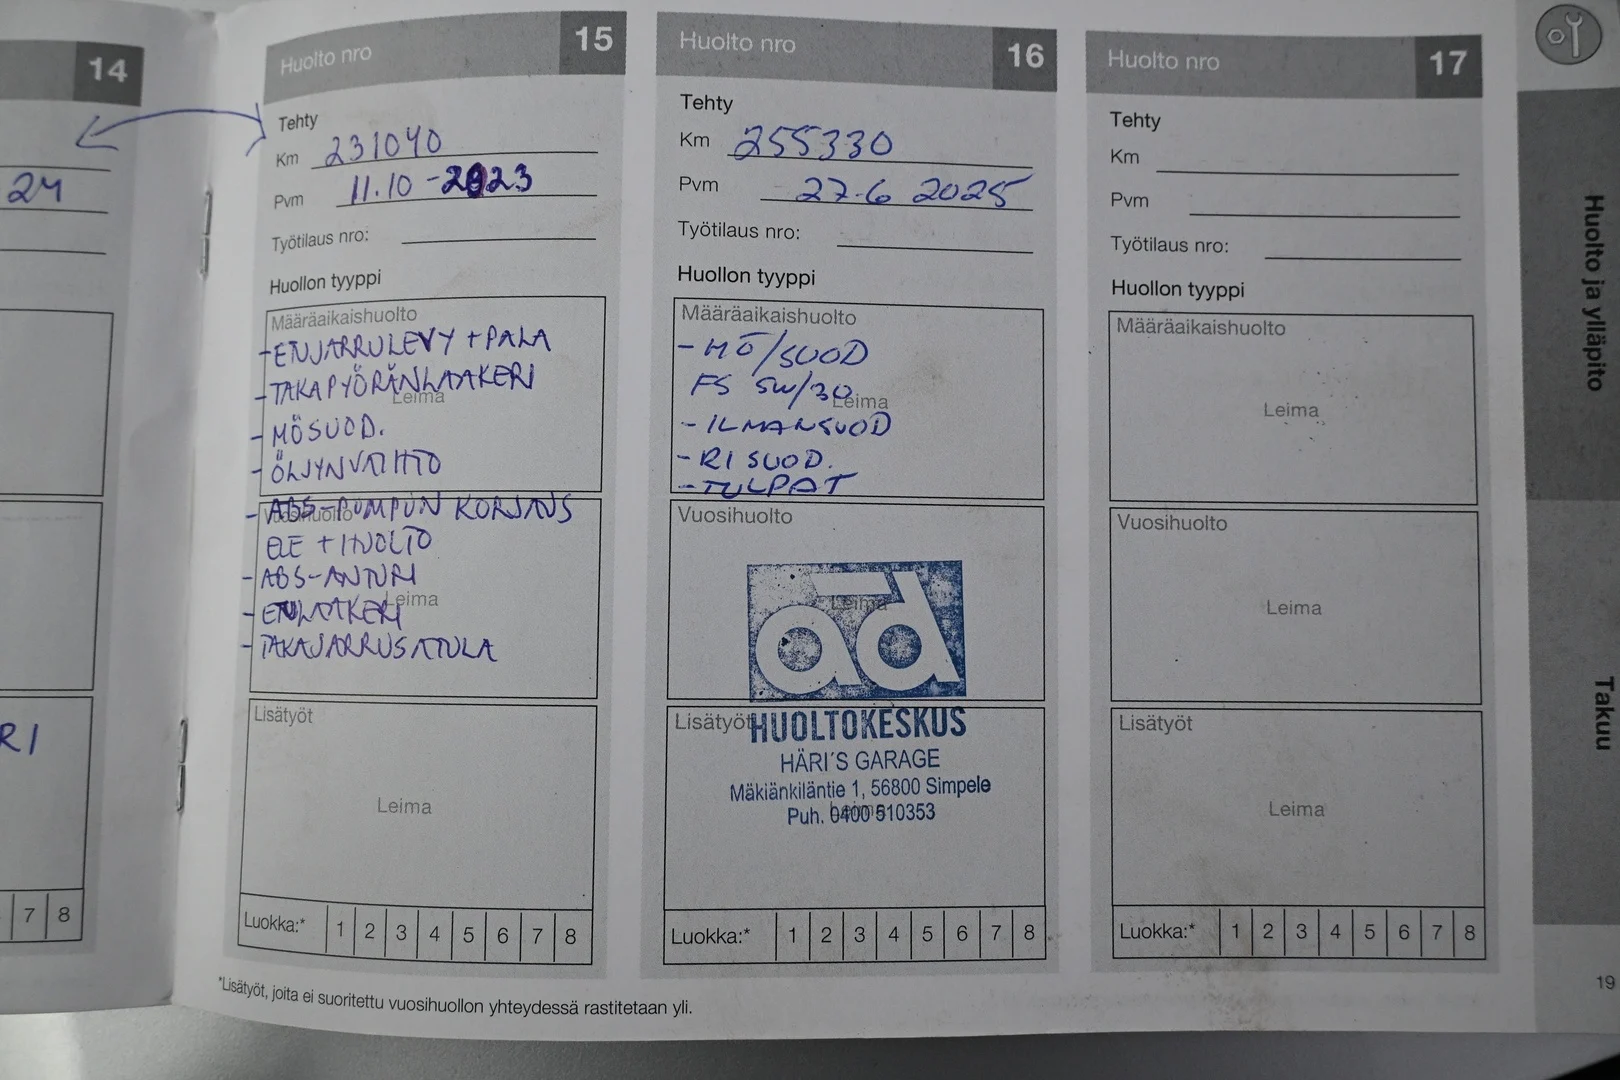 14
24
RI
7 8
Huolto nro 15
Tehty
Km 231040
Pvm 11.10-2023
Työtilaus nro:
Huollon tyyppi
Määräaikaishuolto
- ETUJARRULEVY + PALA
- TAKAPYÖRÄNLAAKERI
Leima
- MÖSUOD.
- ÖLJYNVAIHTO
- ABS-PUMPUN KORJAUS
Vuosihuolto
- ABS-ANTURI
Leima
- ETULAAKERI
- TAKAJARRUSATULA
Lisätyöt
Leima
Luokka:* 1 2 3 4 5 6 7 8
Huolto nro 16
Tehty
Km 255330
Pvm 27.6 2025
Työtilaus nro:
Huollon tyyppi
Määräaikaishuolto
- MÖ/SUOD
FS 5W/30
Leima
- ILMANSUOD
- RI SUOD.
- TULPAT
Vuosihuolto
ad
Leima
Lisätyöt
HUOLTOKESKUS
HÄRI´S GARAGE
Mäkiänkiläntie 1, 56800 Simpele
Puh. 0400 510353
Leima
Luokka:* 1 2 3 4 5 6 7 8
Huolto nro 17
Tehty
Km
Pvm
Työtilaus nro:
Huollon tyyppi
Määräaikaishuolto
Leima
Vuosihuolto
Leima
Lisätyöt
Leima
Luokka:* 1 2 3 4 5 6 7 8
*Lisätyöt, joita ei suoritettu vuosihuollon yhteydessä rastitetaan yli.
Huolto ja ylläpito
Takuu
19